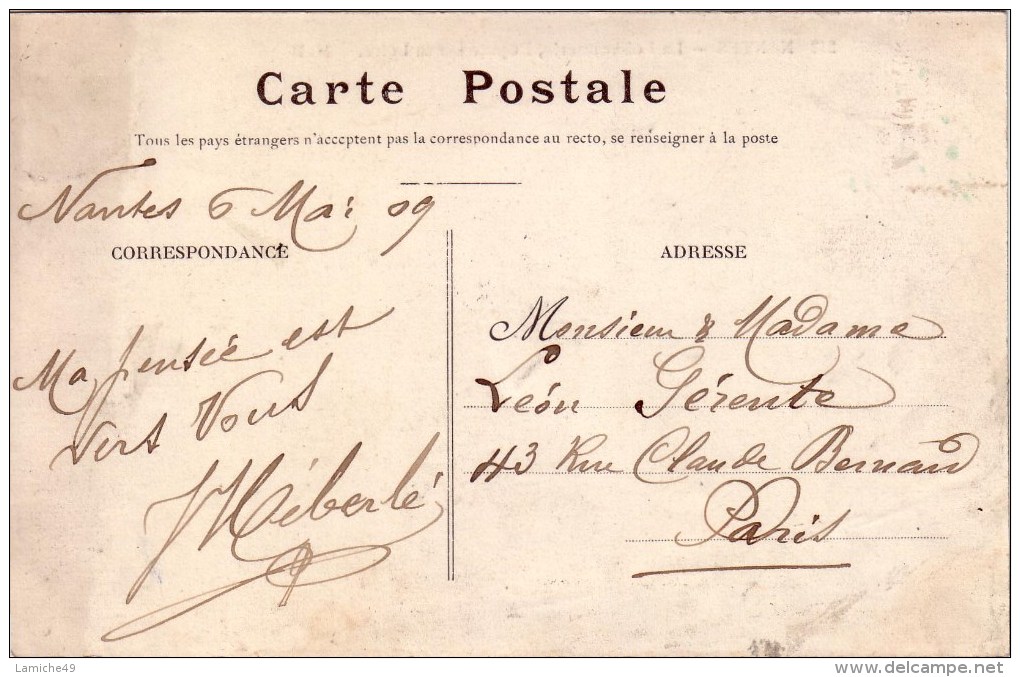 Carte Postale
Tous les pays étrangers n'acceptent pas la correspondance au recto, se renseigner à la poste
Nantes 6 Mai 09
CORRESPONDANCE
Ma pensée est
vers Vous
ADRESSE
Monsieur & Madame
Léon Gérente
43 Rue Claude Bernard
Paris
Lamiche49
www.delcampe.net